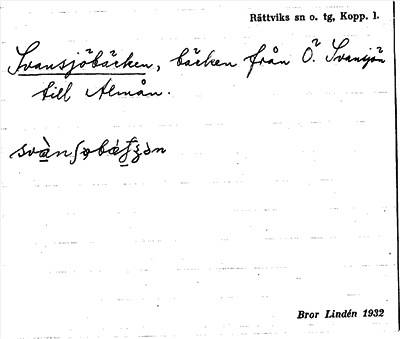 Rättviks sn o. tg, Kopp. l.
Svansjöbäcken, bäcken från Ö. Svansjön
till Alman.
Bror Lindén 1932